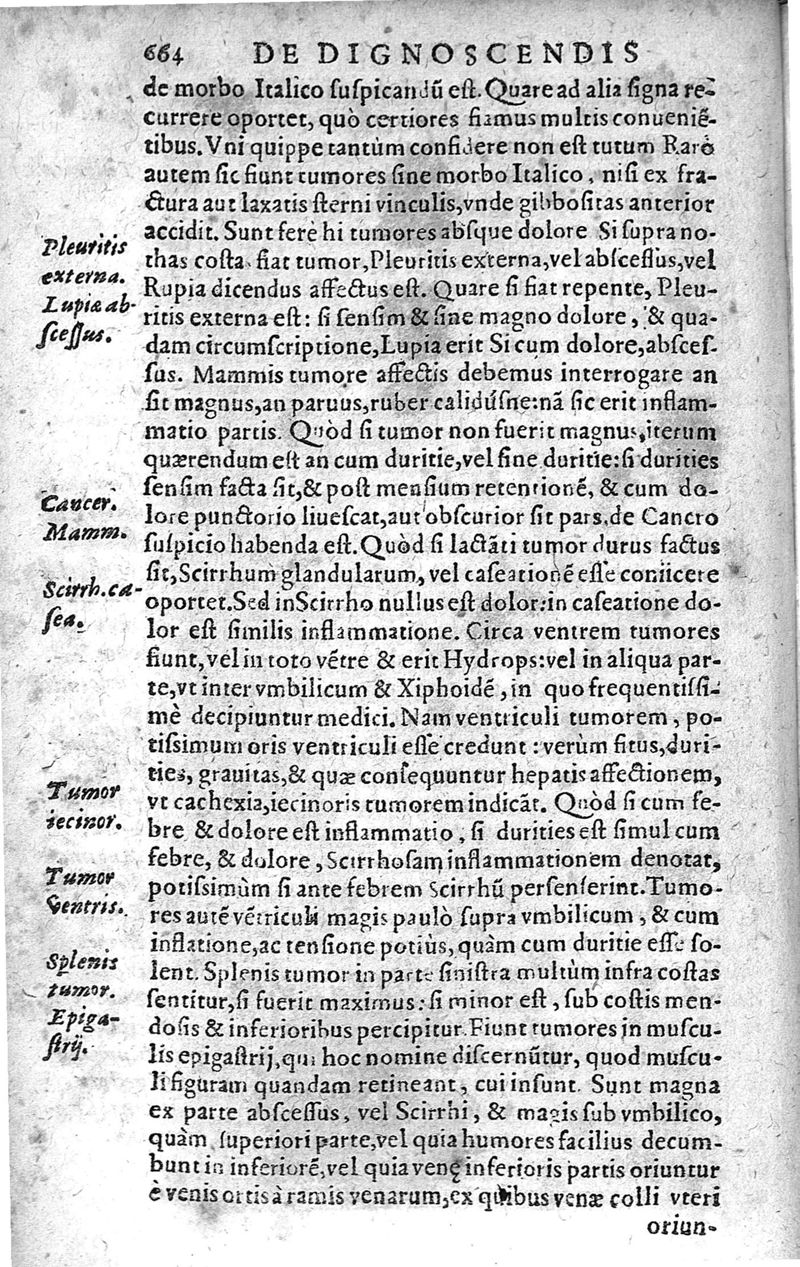 664 DE DIGNOSCENDIS
de morbo Italico ſuſpicandū eſt. Quare ad alia ſigna re-
currere oportet, quò certiores fiamus multis conueniē-
tibus. Vni quippe tantùm confidere non eſt tutum Rarò
autem ſic fiunt tumores ſine morbo Italico, niſi ex fra-
ctura aut laxatis ſterni vinculis, vnde gibboſitas anterior
accidit. Sunt ferè hi tumores abſque dolore Si ſupra no-
thas coſta. fiat tumor, Pleuritis externa, vel abſceſſus, vel
Rupia dicendus affectus eſt. Quare ſi fiat repente, Pleu-
ritis externa eſt: ſi ſenſim & ſine magno dolore, & qua-
dam circumſcriptione, Lupia erit Si cum dolore, abſceſ-
ſus. Mammis tumore affectis debemus interrogare an
ſit magnus, an paruus, ruber calidúſne: nā ſic erit inflam-
matio partis. Quòd ſi tumor non fuerit magnus, iterum
quærendum eſt an cum duritie, vel ſine duritie: ſi durities
ſenſim facta ſit, & poſt menſium retentionē, & cum do-
lore punctorio liueſcat, aut obſcurior ſit pars, de Cancro
ſuſpicio habenda eſt. Quòd ſi lactāti tumor durus factus
ſit, Scirrhum glandularum, vel caſeationē eſſe coniicere
oportet. Sed in Scirrho nullus eſt dolor: in caſeatione do-
lor eſt ſimilis inflammatione. Circa ventrem tumores
fiunt, vel in toto vētre & erit Hydrops: vel in aliqua par-
te, vt inter vmbilicum & Xiphoidē, in quo frequentiſſi-
mè decipiuntur medici. Nam ventriculi tumorem, po-
tiſſimum oris ventriculi eſſe credunt: verùm ſitus, duri-
ties, grauitas, & quæ conſequuntur hepatis affectionem,
vt cachexia, iecinoris tumorem indicāt. Quòd ſi cum fe-
bre & dolore eſt inflammatio, ſi durities eſt ſimul cum
febre, & dolore, Scirrhoſam inflammationem denotat,
potiſſimùm ſi ante febrem Scirrhū perſenſerint. Tumo-
res autē vētriculi magis paulò ſupra vmbilicum, & cum
inflatione, ac tenſione potiùs, quàm cum duritie eſſe ſo-
lent. Splenis tumor in parte ſiniſtra multùm infra coſtas
ſentitur, ſi fuerit maximus: ſi minor eſt, ſub coſtis men-
doſis & inferioribus percipitur. Fiunt tumores in muſcu-
lis epigaſtrij, qui hoc nomine diſcernūtur, quod muſcu-
li figuram quandam retineant, cui inſunt. Sunt magna
ex parte abſceſſus, vel Scirrhi, & magis ſub vmbilico,
quàm ſuperiori parte, vel quia humores facilius decum-
bunt in inferiorē, vel quia venę inferioris partis oriuntur
è venis ortis à ramis venarum, ex quibus venæ colli vteri
oriun-
Pleuritis
externa.
Lupiæ ab-
ſceſſus.
Cancer.
Mamm.
Scirrh. ca-
ſea.
Tumor
iecinor.
Tumor
Ventris.
Splenis
tumor.
Epiga-
ſtrij.